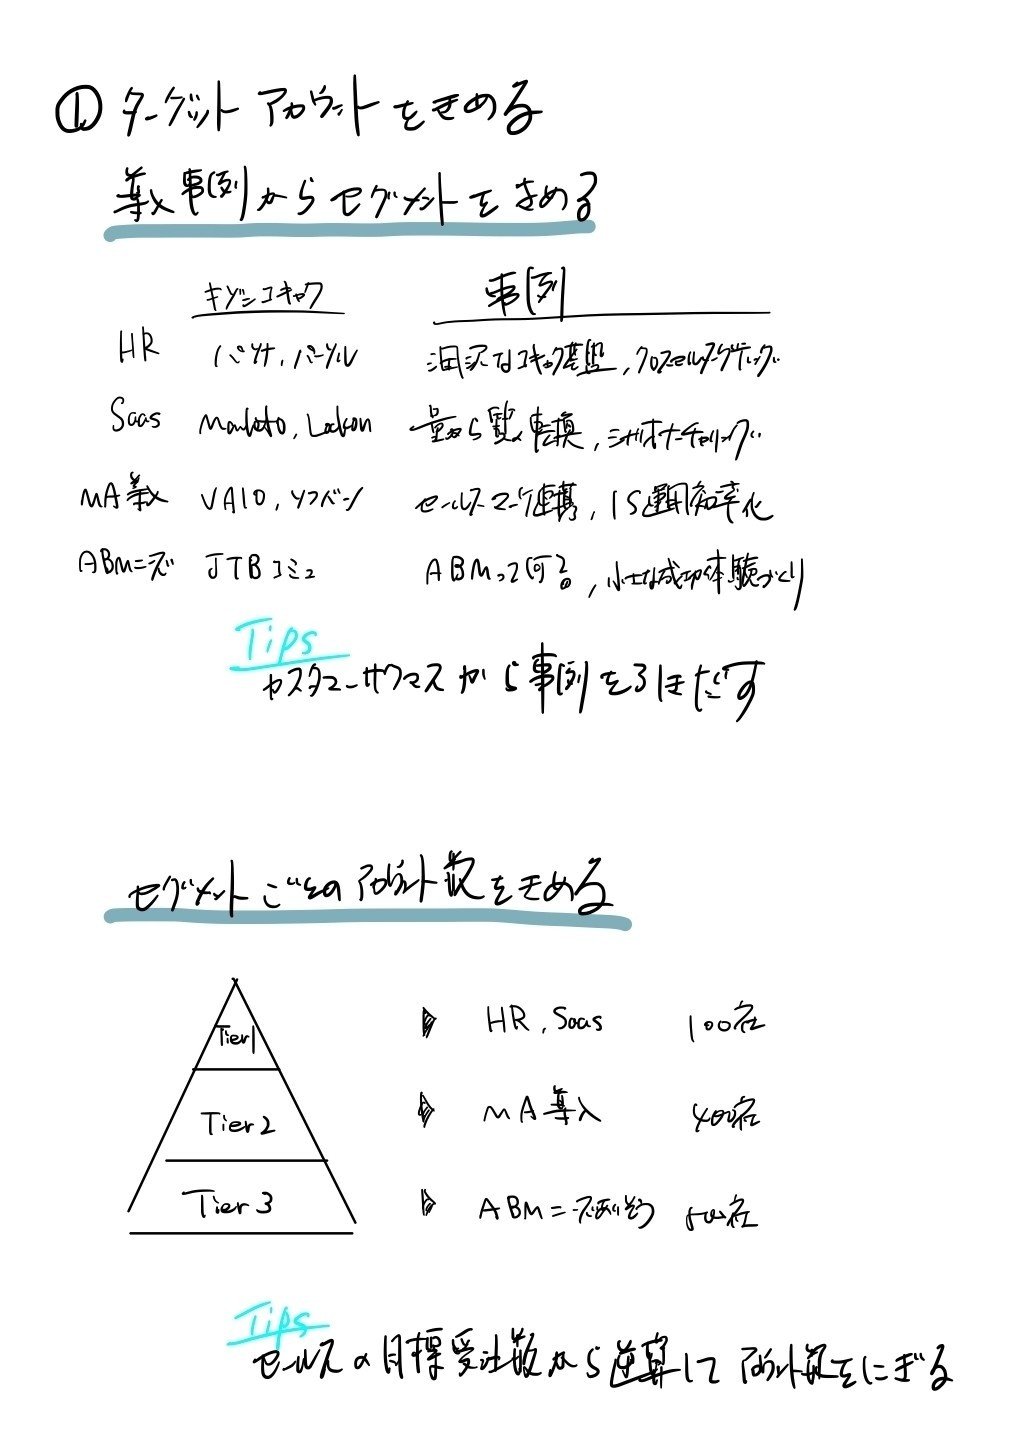 ① ターゲットアカウントをきめる
導入事例からセグメントをきめる
キゾンコキャク 事例
HR パソナ、パーソル 潤沢なコキャク基盤、クロスセルターゲティング
Saas Marketo, Lockon 量から質へ転換、シナリオナーチャリング
MA導入 VAIO, ソフバン セールスマーケ連携、IS運用効率化
ABMニーズ JTBコミュ ABMって何?、小さな成功体験づくり
Tips
カスタマーサクセスから事例をひきだす
セグメントごとのアカウント数をきめる
Tier1 HR, Saas 100社
Tier2 MA導入 400社
Tier3 ABMニーズありそう 500社
Tips
セールスの目標受注数から逆算してアカウント数をにぎる